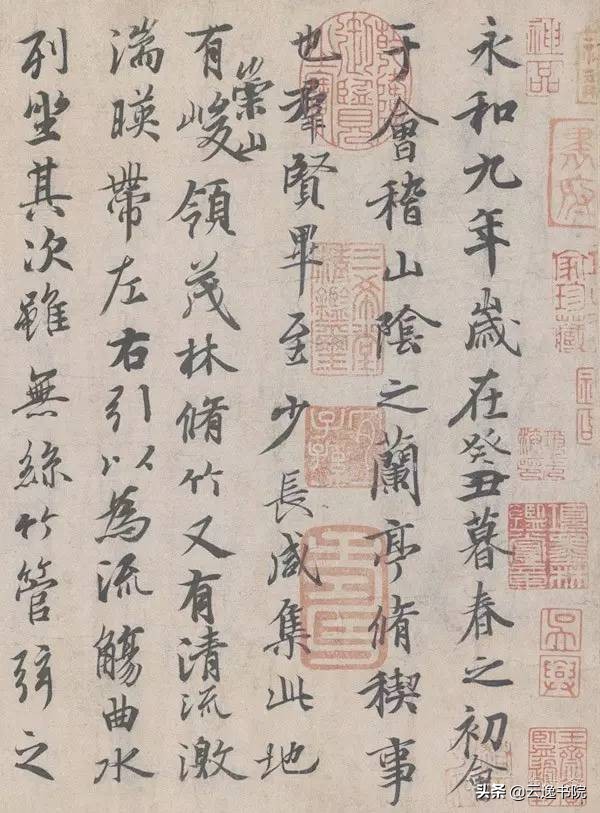 永和九年歲在癸丑暮春之初會
于會稽山陰之蘭亭脩稧事
也羣賢畢至少長咸集此地
有崇山峻領茂林脩竹又有清流激
湍暎帶左右引以為流觴曲水
列坐其次雖無絲竹管弦之
神品
三希堂精鑑璽
宜子孫
吳興
头条 @云逸书院